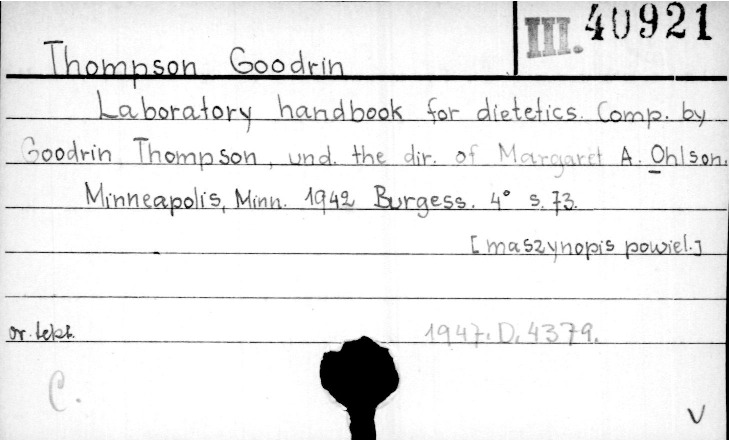 III. 40921
Thompson Goodrin
Laboratory handbook for dietetics. Comp. by
Goodrin Thompson, und. the dir. of Margaret A. Ohlson.
Minneapolis, Minn. 1942 Burgess. 4° s. 73.
[maszynopis powiel.]
1947. D. 4379.
C.
V